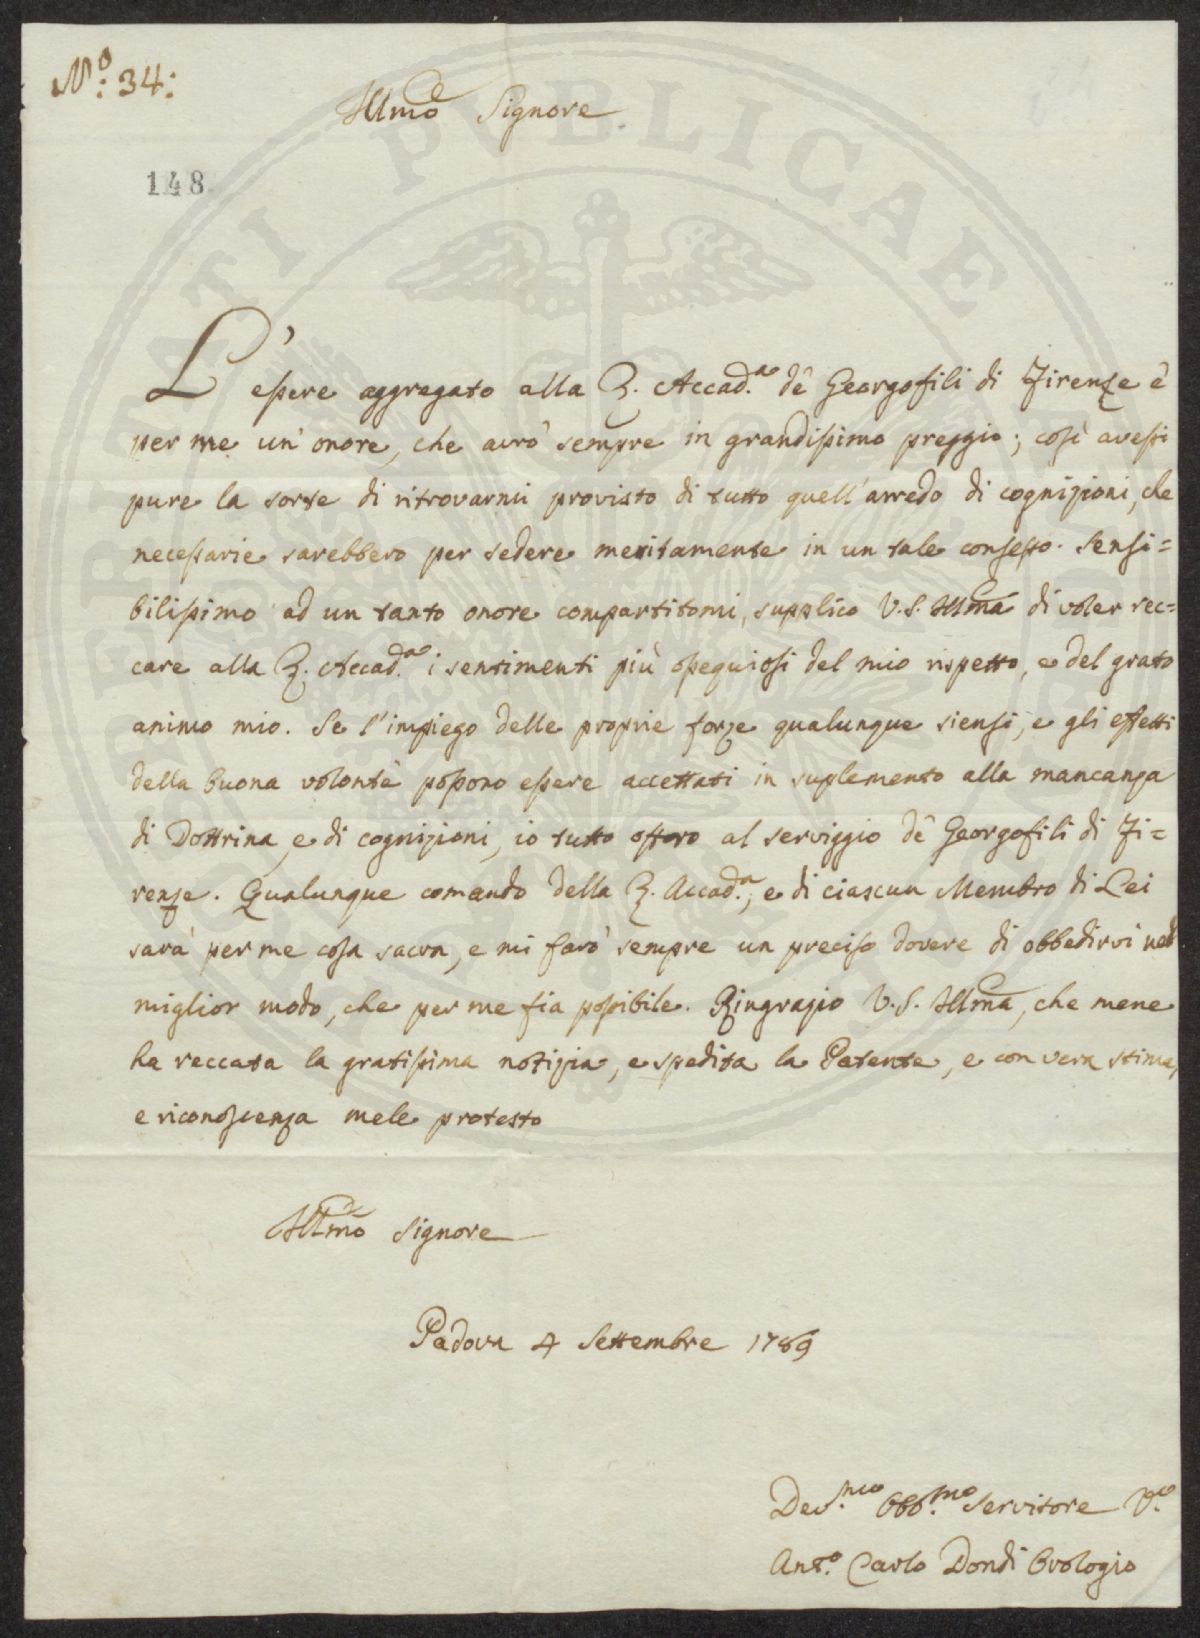 N.º 34:
Illmo Signore
148
L'essere aggregato alla R. Accad.a de' Georgofili di Firenze è
per me un' onore, che avrò sempre in grandissimo preggio; così avessi
pure la sorte di ritrovarmi provisto di tutto quell'arredo di cognizioni, che
necessarie sarebbero per sedere meritamente in un tale consesso. Sensi=
bilissimo ad un tanto onore compartitomi, supplico V.S. Illma di voler rec=
care alla R. Accad.a i sentimenti più ossequiosi del mio rispetto, e del grato
animo mio. Se l'impiego delle proprie forze qualunque siensi, e gli effetti
della buona volontà possono essere accettati in suplemento alla mancanza
di Dottrina, e di cognizioni, io tutto offero al serviggio de' Georgofili di Fi=
renze. Qualunque comando della R. Accad.a, e di ciascun Membro di Lei
sarà per me cosa sacra, e mi farò sempre un preciso dovere di obbedirvi nel
miglior modo, che per me fia possibile. Ringrazio V.S. Illma, che mene
ha reccata la gratissima notizia, e spedita la Patente, e con vera stima,
e riconoscenza mele protesto
Illmo Signore
Padova 4 Settembre 1789
Dev.mo Obb.mo Servitore V.o
Ant.o Carlo Dondi Orologio
PUBLICAE